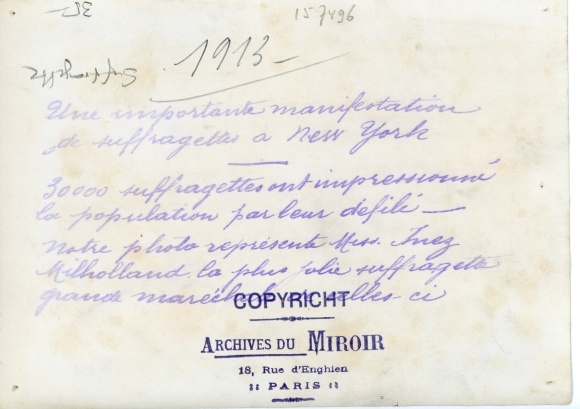 157496
1913
Suffragette
Une importante manifestation
de suffragettes a New York
30000 suffragettes ont impressionné
la population par leur defilé
Notre photo represente Miss. Inez
Milholland. la plus jolie suffragette
grande maréchal celles ci
COPYRICHT
ARCHIVES DU MIROIR
18, Rue d'Enghien
PARIS